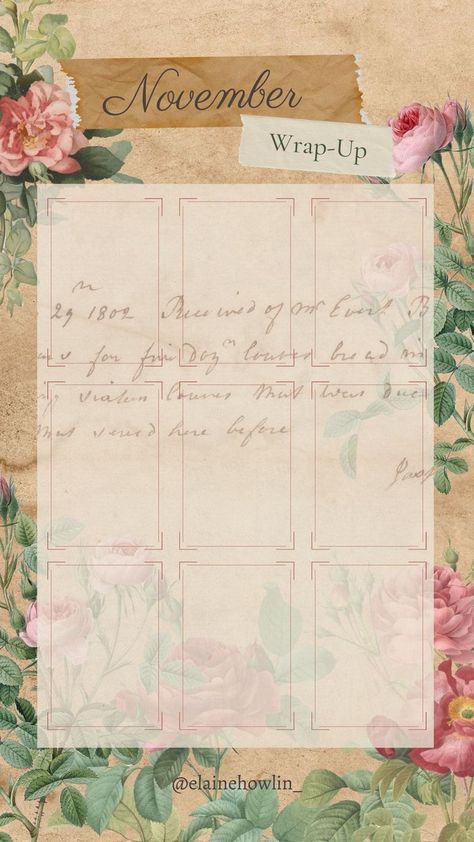 November
Wrap-Up
29 1802 Received of Mr Ever. B
for five Doz loaves bread
loaves that was due
that served here before
@elainehowlin_